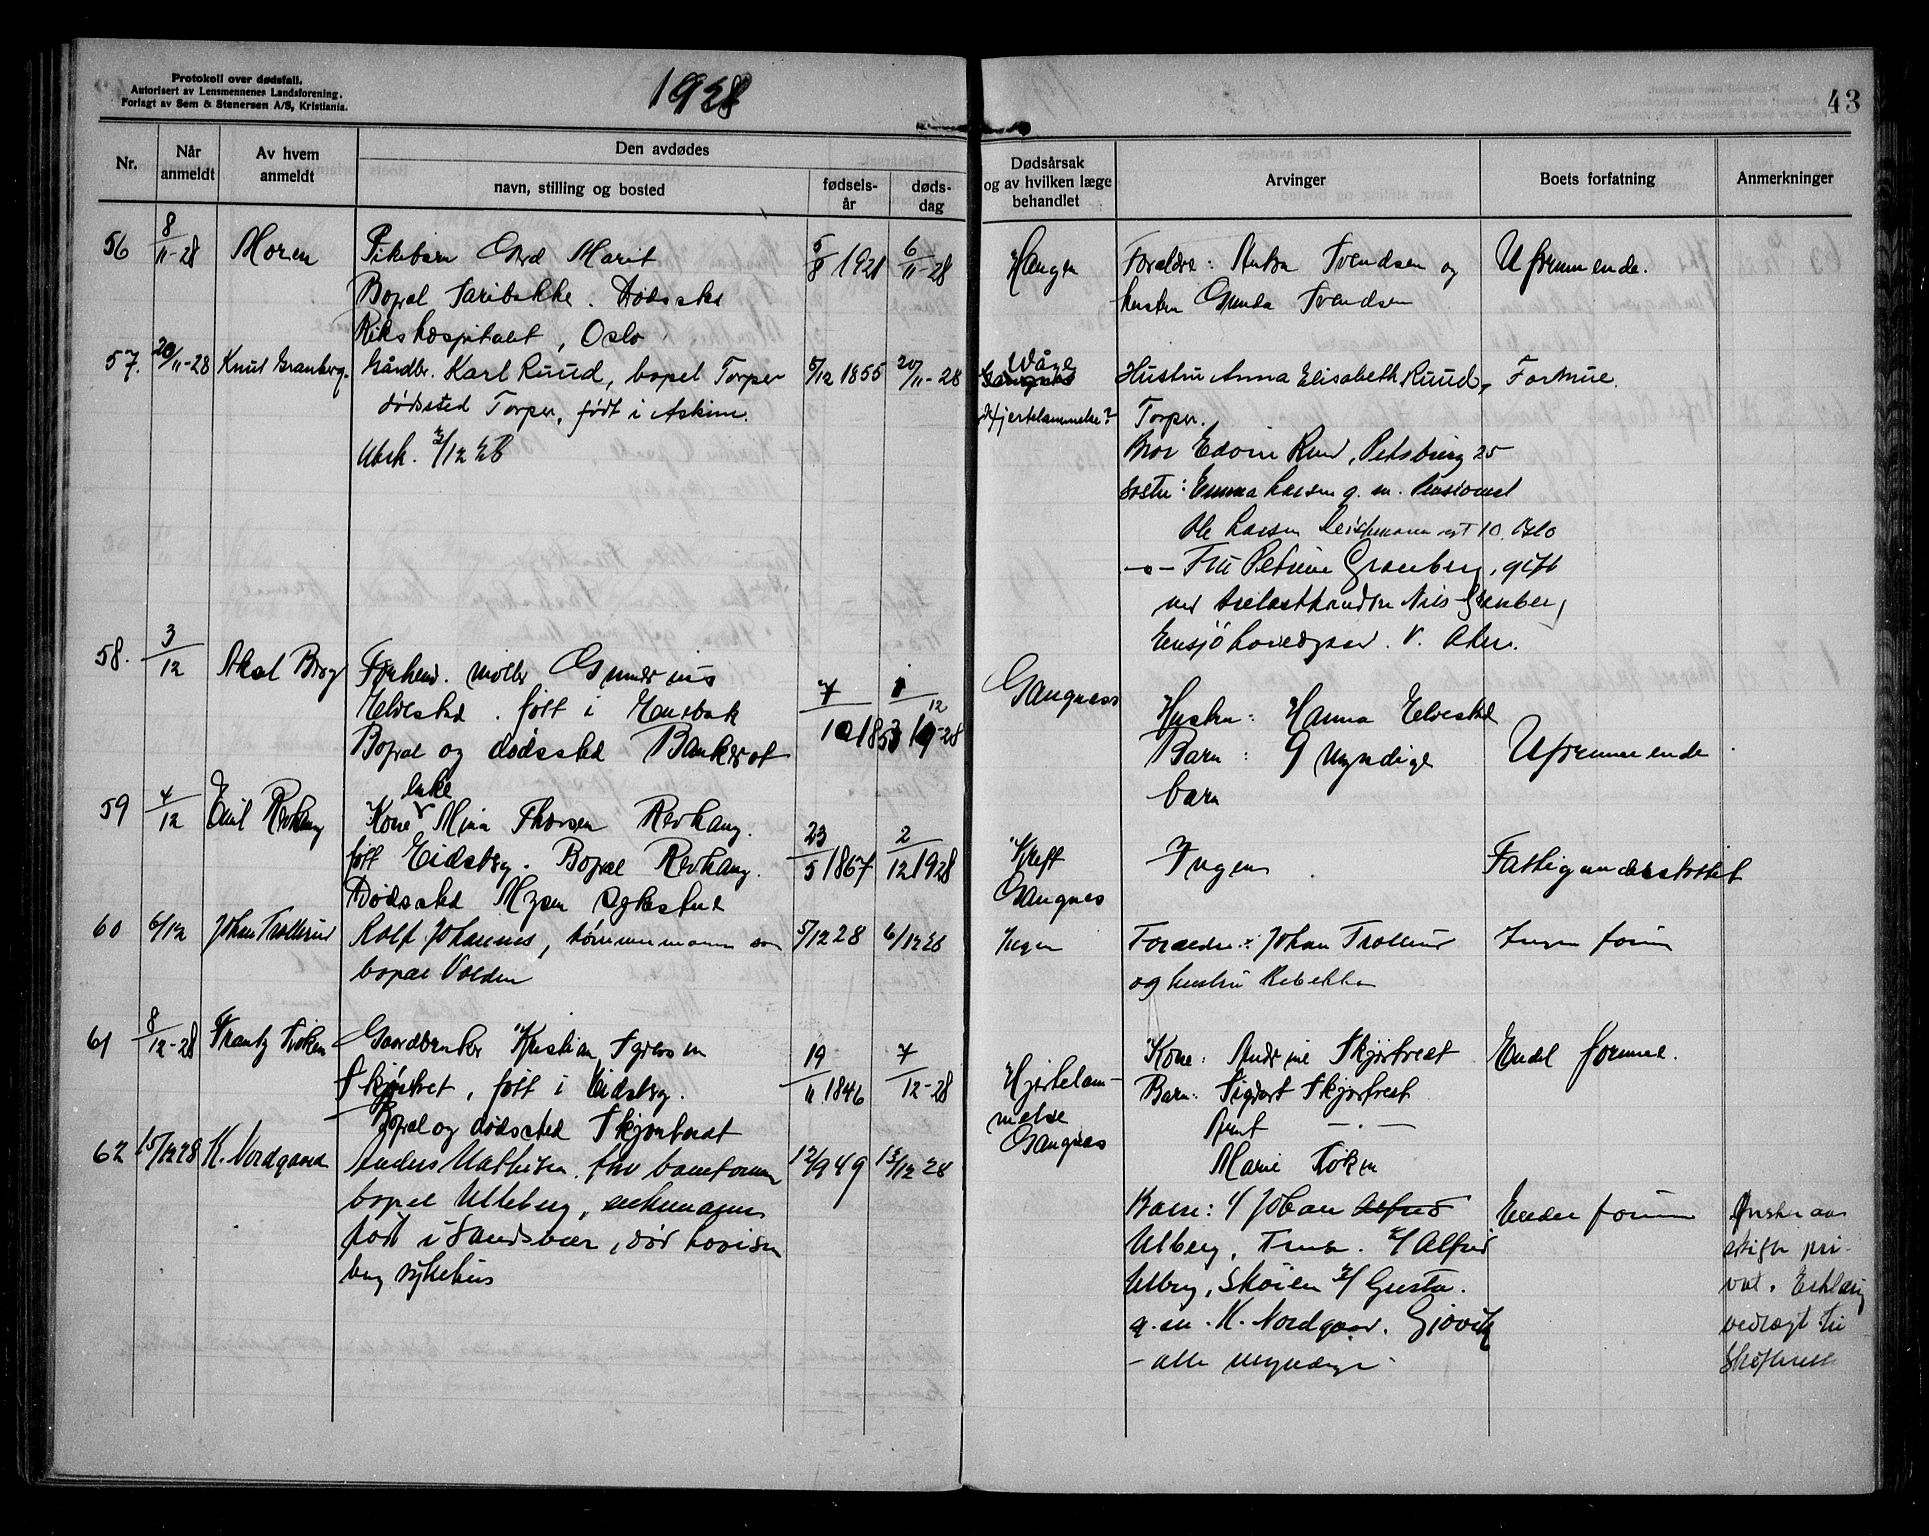 Protokoll over dødsfall.
Autorisert av Lensmennenes Landsforening.
Forlagt av Sem & Stenersen A/S, Kristiania.
1928
43
Nr.
Når anmeldt
Av hvem anmeldt
Den avdødes
navn, stilling og bosted
fødsels-år
døds-dag
Dødsårsak og av hvilken læge behandlet
Arvinger
Boets forfatning
Anmerkninger
56 8/11-28 Moren Pikebarn Gerd Marit 5/8 1921 6/11-28 Haugen Foreldre: Anton Svendsen og Uformuende.
Bopæl Saribakke. Dødssted hustru Gunda Svendsen
Rikshospitalet, Oslo
57. 20/11-28 Knut Granberg. Gårdbr. Karl Ruud, bopel Torper 5/12 1855 20/11-28 Wåge Hustru Anna Elisabeth Ruud, Formue.
dødssted Torper, født i Askim. Hjertelammelse? Torper.
Utsk. 3/12 28 Bror Edvin Ruud, 25
Søster: Emma Larsen g. m. Pensionist
Ole Larsen 10. Oslo
-"- Fru Petrine Granberg, gift
med trelasthandler Nils Granberg
Ensjø hovedgaard. V. Aker.
58. 3/12 Aksel Berg Forhenv. møller Gunerius 7/10 1853 1/12 19-28 Gangness
Elvestad. født i Enebak Hustru: Hanna Elvestad
Bopæl og dødssted Bankerot Barn: 9 myndige Uformuende
barn
59 4/12 Emil Revhaug enke
Kone Mina Thorsen Revhaug. 23/5 1867 2/12 1928 Kreft Ingen Fattigunderstøttet
født Eidsberg. Bopæl Revhaug. Gangnes
Dødssted Mysen sykestue
60 6/12 Johan Trollerud Rolf Johannes, tømmermann søn 5/12 28 6/12 28 Ingen Forældre: Johan Trollerud Ingen form
bopæl Volden og hustru Rebekka
61 8/12-28 Frantz Løken Gaardbruker Kristian Syversen 19/11 1846 7/12-28 Hjertelam- Kone: Andrine Skjørtvedt Endel formue.
Skjørtvet, født i Eidsberg. melse Barn: Sigvart Skjørtvedt
Bopæl og dødssted Skjørtvedt Gangnes Arnt -"-
Marie Løken
62 15/12 28 K. Nordgaard Anders Mathisen. fhv baneformann 12/9 49 13/12 28
bopæl Ulleberg, enkemann Barn: 1/ Johan Alfred Endel form Ønsker aa
født i Sandsvær, død Lovisen Ulberg, 2/ Alfred skifte pri-
berg sykehus Ulberg, Skøien 3/ Gusta. vat. Erklæring
g. m. K. Nordgaar. Gjøvik vedlagt til
- alle myndige - Skifterett